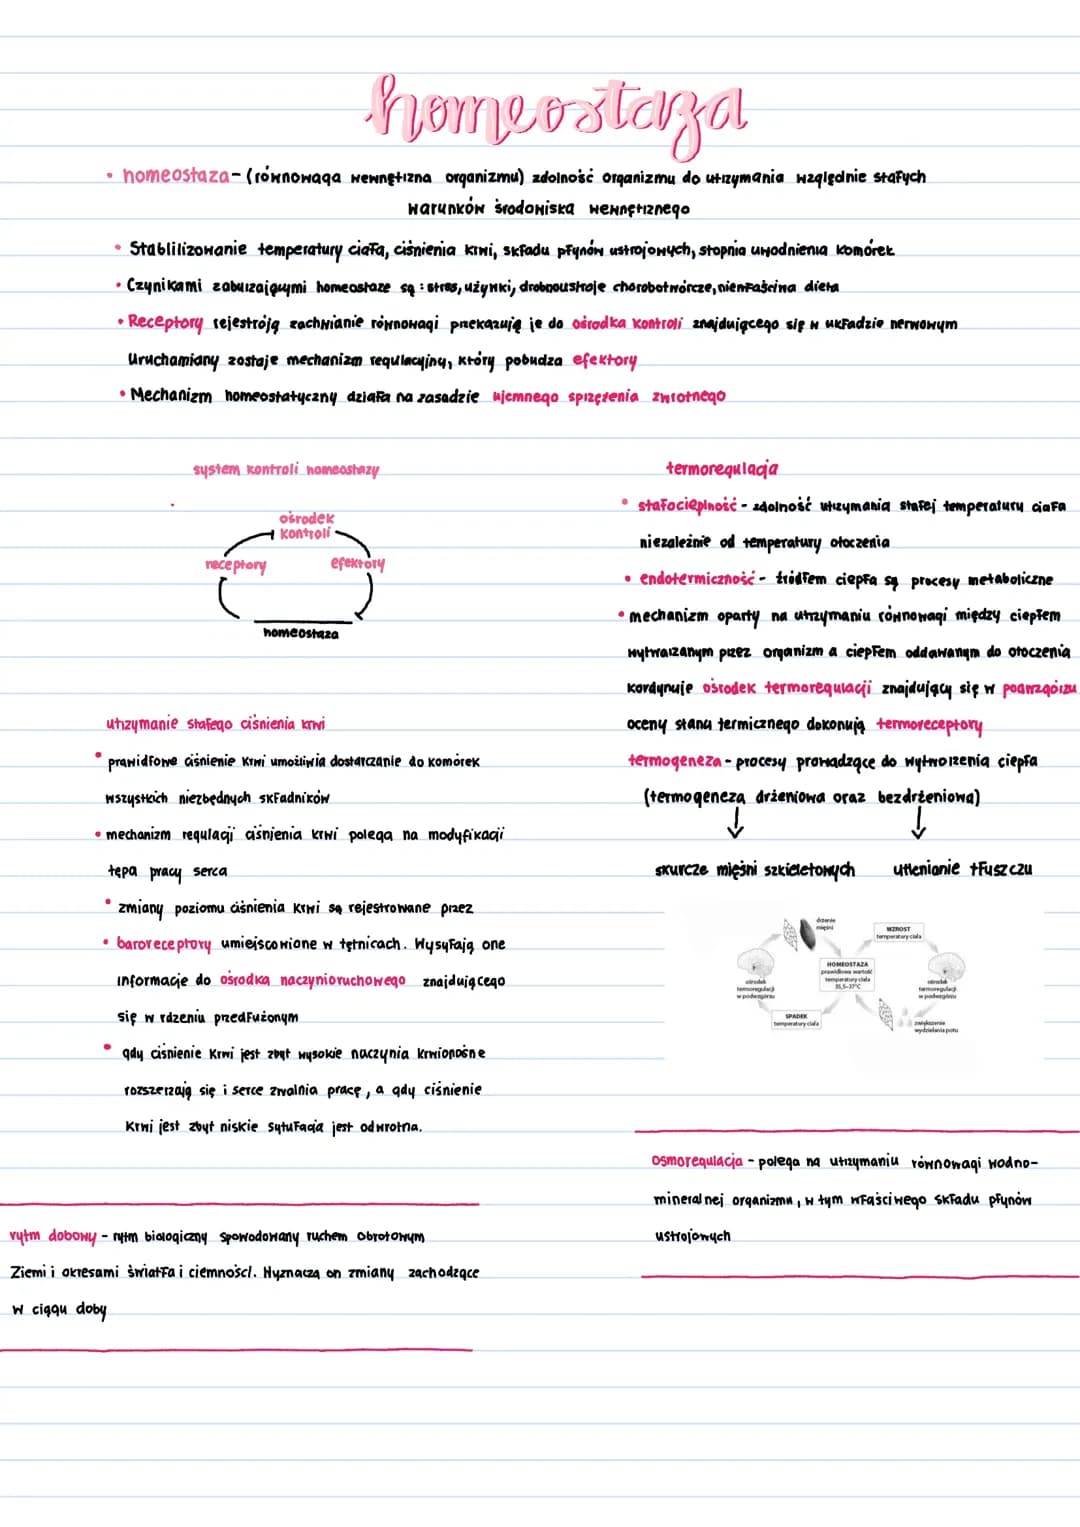 homeostaza
• homeostaza - (równowaga wewnętrzna organizmu) zdolność organizmu do utrzymania względnie stałych
warunków środowiska wewnętrznego
• Stablilizowanie temperatury ciała, ciśnienia krwi, składu płynów ustrojowych, stopnia uwodnienia komórek
• Czynikami zaburzającymi homeostaze są: stres, używki, drobnoustroje chorobotwórcze, nienłaściwa dieta
• Receptory rejestróją zachwianie równowagi przekazują je do ośrodka kontroli znajdującego się w układzie nerwowym
Uruchamiany zostaje mechanizm regulacyjny, który pobudza efektory
• Mechanizm homeostatyczny działa na zasadzie ujemnego sprzężenia zwrotnego
system kontroli homeostazy
ośrodek
kontroli
receptory efektory
homeostaza
utrzymanie stałego ciśnienia krwi
• prawidłowe ciśnienie krwi umożliwia dostarczanie do komórek
wszystkich niezbędnych składników
• mechanizm regulacji ciśnienia krwi polega na modyfikacji
tępa pracy serca
• zmiany poziomu ciśnienia krwi są rejestrowane przez
• baroreceptory umiejscowione w tętnicach. Wysyłają one
informacje do ośrodka naczynioruchowego znajdującego
się w rdzeniu przedłużonym
• gdy ciśnienie krwi jest zbyt wysokie naczynia krwionośne
rozszerzają się i serce zwalnia pracę, a gdy ciśnienie
krwi jest zbyt niskie sytułacja jest odwrotna.
rytm dobowy - rytm biologiczny spowodowany ruchem obrotowym
Ziemi i okresami światła i ciemności. Wyznacza on zmiany zachodzące
w ciągu doby
termoregulacja
• stałocieplność - zdolność utrzymania stałej temperatury ciała
niezależnie od temperatury otoczenia
• endotermiczność - źródłem ciepła są procesy metaboliczne
• mechanizm oparty na utrzymaniu równowagi między ciepłem
wytwarzanym przez organizm a ciepłem oddawanym do otoczenia
kordynuje ośrodek termoregulacji znajdujący się w podwzgórzu
oceny stanu termicznego dokonują termoreceptory
termogeneza - procesy prowadzące do wytworzenia ciepła
(termogeneza drżeniowa oraz bezdrżeniowa)
skurcze mięśni szkieletowych utlenianie tłuszczu
drżenie
mięśni
WZROST
temperatury ciała
HOMEOSTAZA
prawidłowa wartość
temperatury ciała
35,5–37°C
ośrodek
termoregulacji
w podwzgórzu
ośrodek
termoregulacji
w podwzgórzu
SPADEK
temperatury ciała
zwiększenie
wydzielania potu
osmoregulacja - polega na utrzymaniu równowagi wodno-
mineralnej organizmu, w tym właściwego składu płynów
ustrojowych